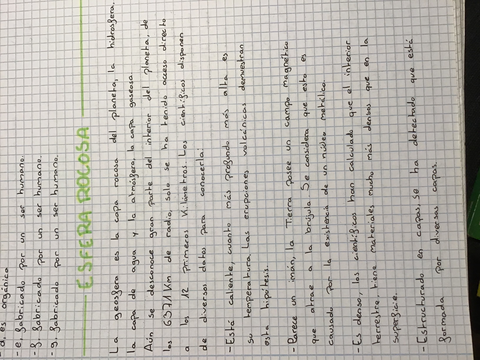 -d. es orgánica
-e. fabricado por un ser humano.
-f. fabricado por un ser humano.
-g. fabricado por un ser humano.
ESFERA ROCOSA
La geosfera es la capa rocosa del planeta, la hidrosfera,
la capa de agua y la atmósfera, la capa gaseosa.
Aún se desconoce gran parte del interior del planeta, de
los 6371 Km de radio, solo se ha tenido acceso directo
a los 12 primeros kilómetros. Los científicos disponen
de diversos datos para conocerla:
-Está caliente, cuanto más profundo más alta es
su temperatura. Las erupciones volcánicas demuestran
esta hipótesis.
-Parece un imán, la Tierra posee un campo magnético
que atrae a la brújula. Se considera que esto es
causado por la existencia de un núcleo metálico.
-Es denso, los científicos han calculado que el interior
terrestre, tiene materiales mucho más densos que en la
superficie.
-Estructurado en capas, se ha detectado que está
formada por diversas capas.